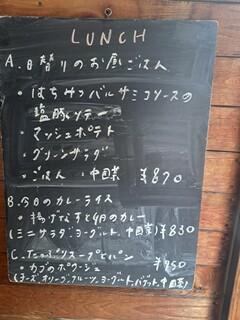 LUNCH
A.日替りのお昼ごはん
・はちみつバルサミコソースの
塩豚ソテー
・マッシュポテト
・グリーンサラダ
・ごはん ・中国茶 ¥870
B.今日のカレーライス
・揚げなすと肉のカレー
(ミニサラダ、ヨーグルト、中国茶) ¥830
C.たっぷりスープとパン
・カブのポタージュ ¥750
(チーズ、オリーブ、フルーツ、ヨーグルト、バゲット、中国茶)